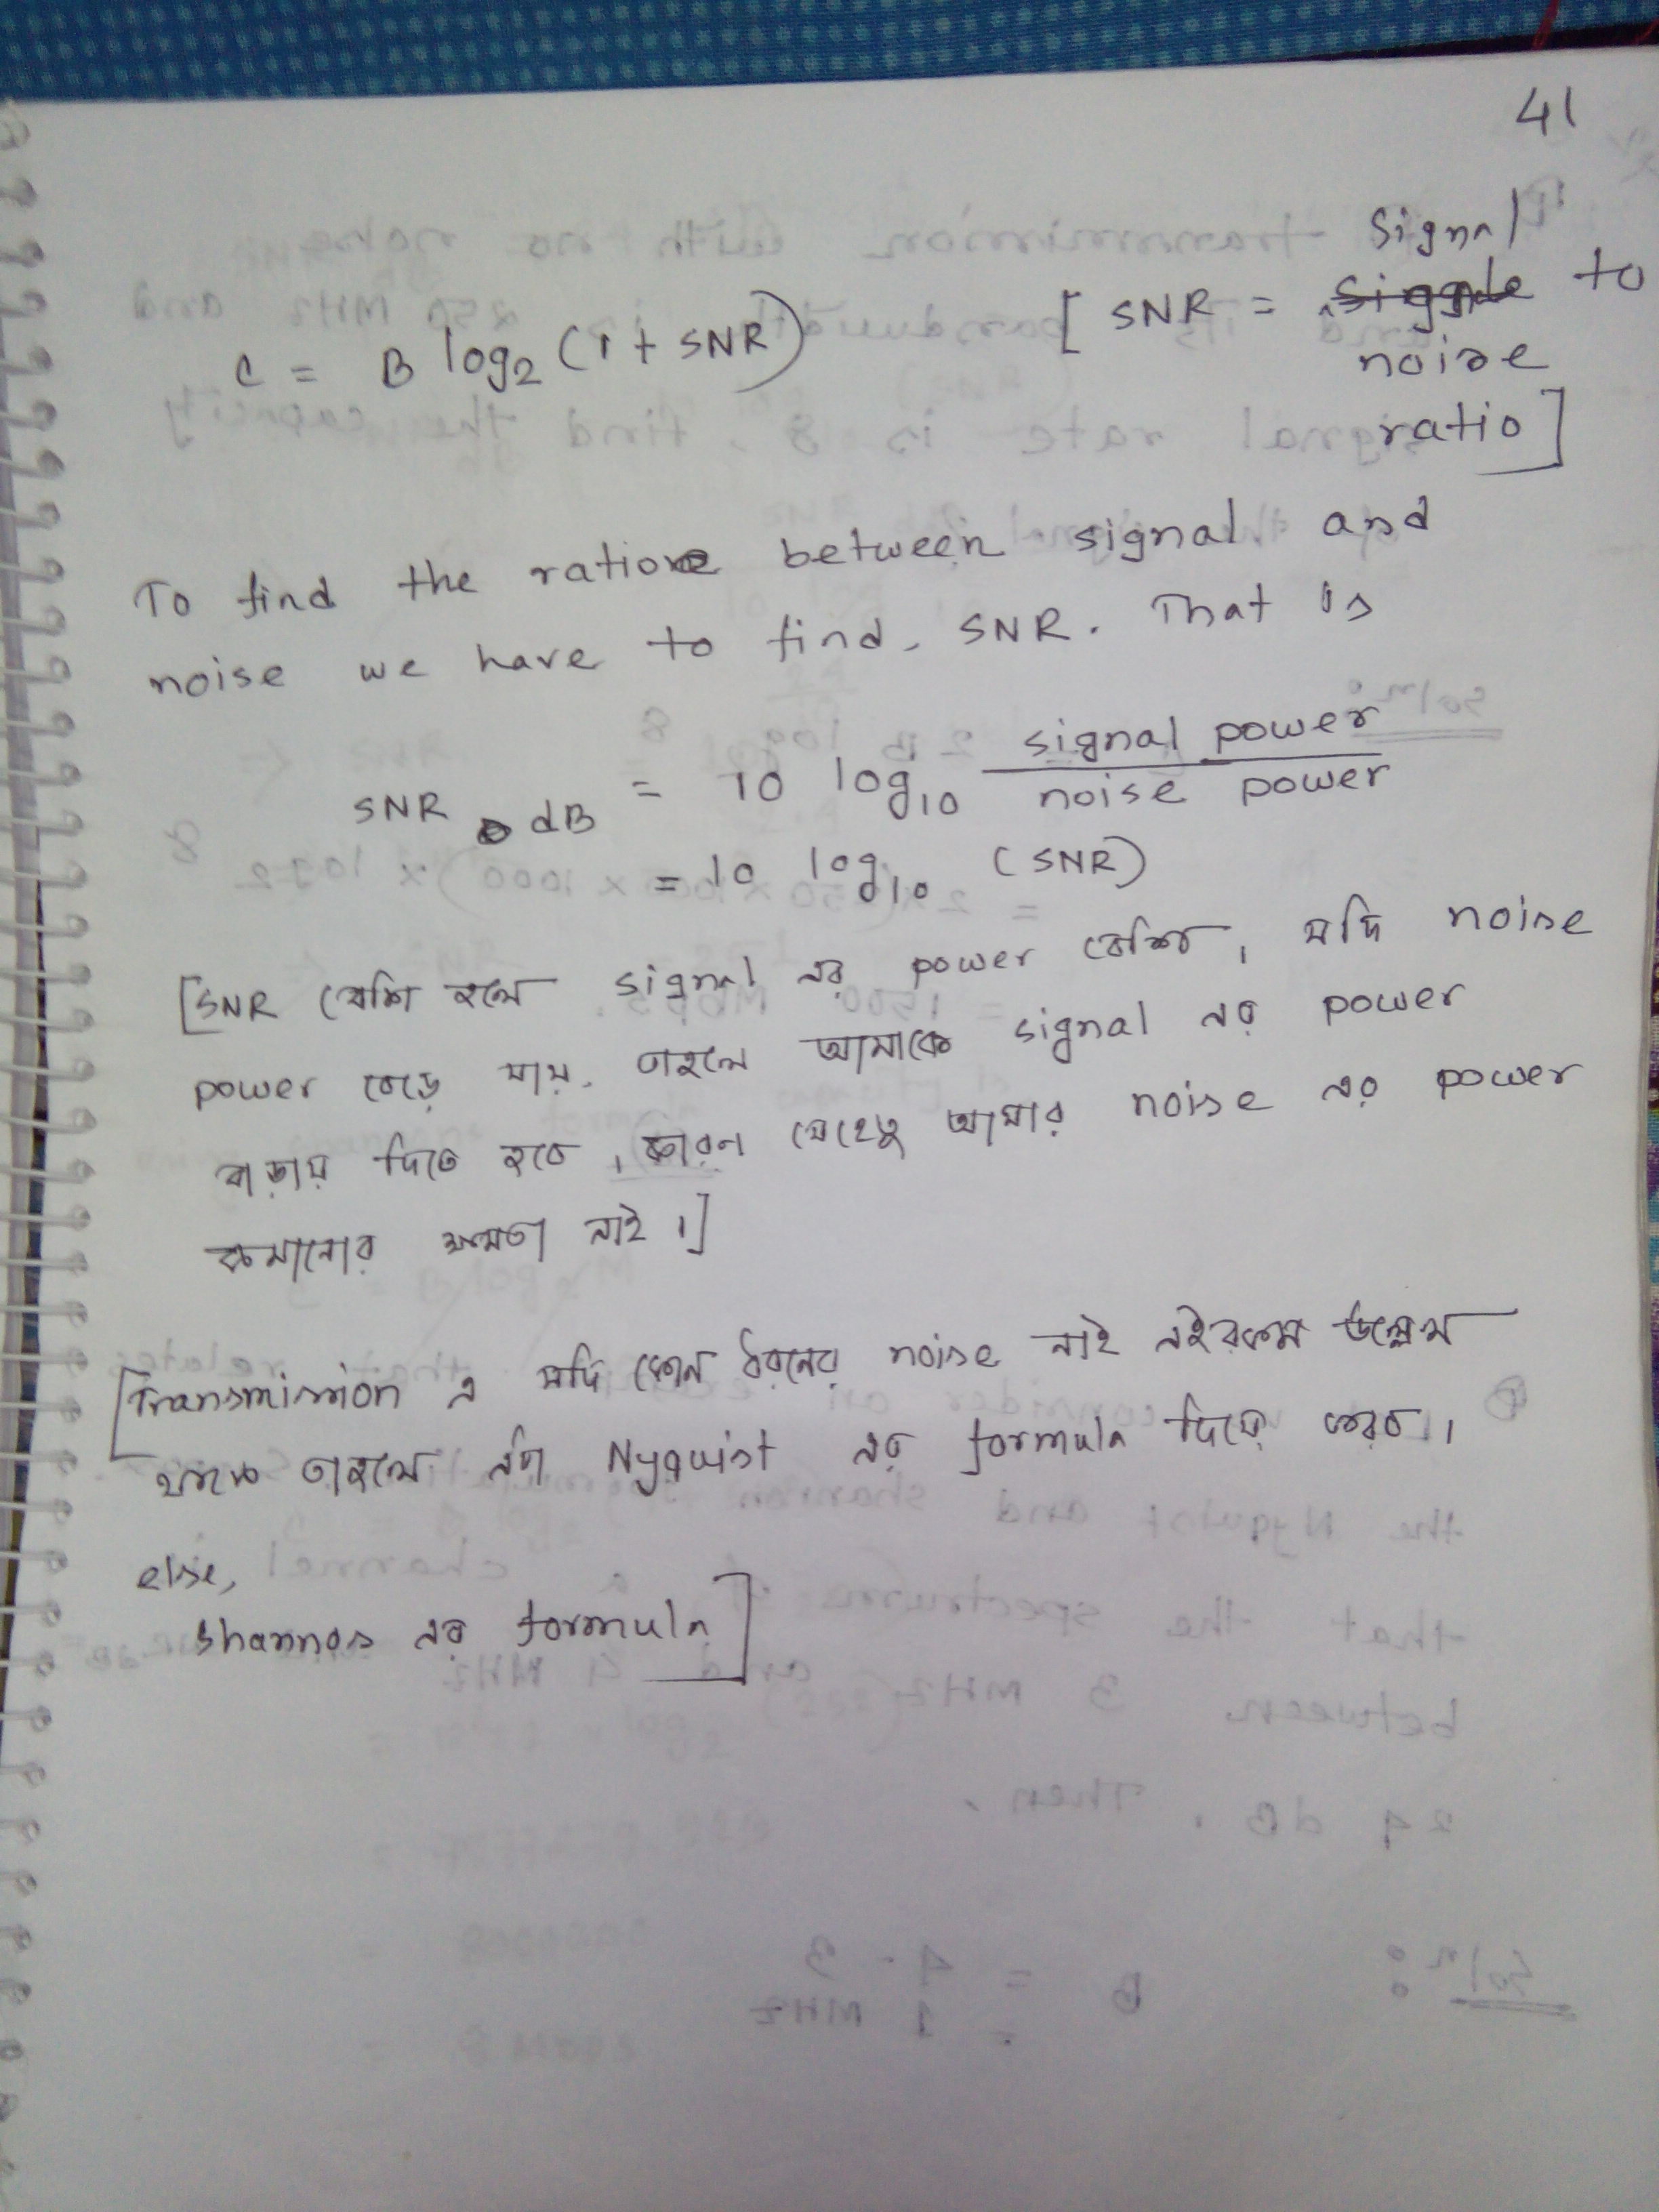 41
C = B log₂ (1 + SNR) [SNR = Signal to
noise
ratio]
To find the ratio between signal and
noise we have to find SNR. That is
SNR dB = 10 log₁₀ signal power
noise power
= 10 log₁₀ (SNR)
[SNR বেশি হলে signal এর power বেশি, যদি noise
power বেড়ে যায়, তাহলে আমাকে signal এর power
বাড়ায় দিতে হবে, কারণ যেহেতু আমার noise এর power
কমানোর ক্ষমতা নাই।]
[Transmission এ যদি কোন ধরনের noise নাই এইরকম উল্লেখ
থাকে তাহলে এটা Nyquist এর formula দিয়ে করব।
else,
Shannos এর formula]